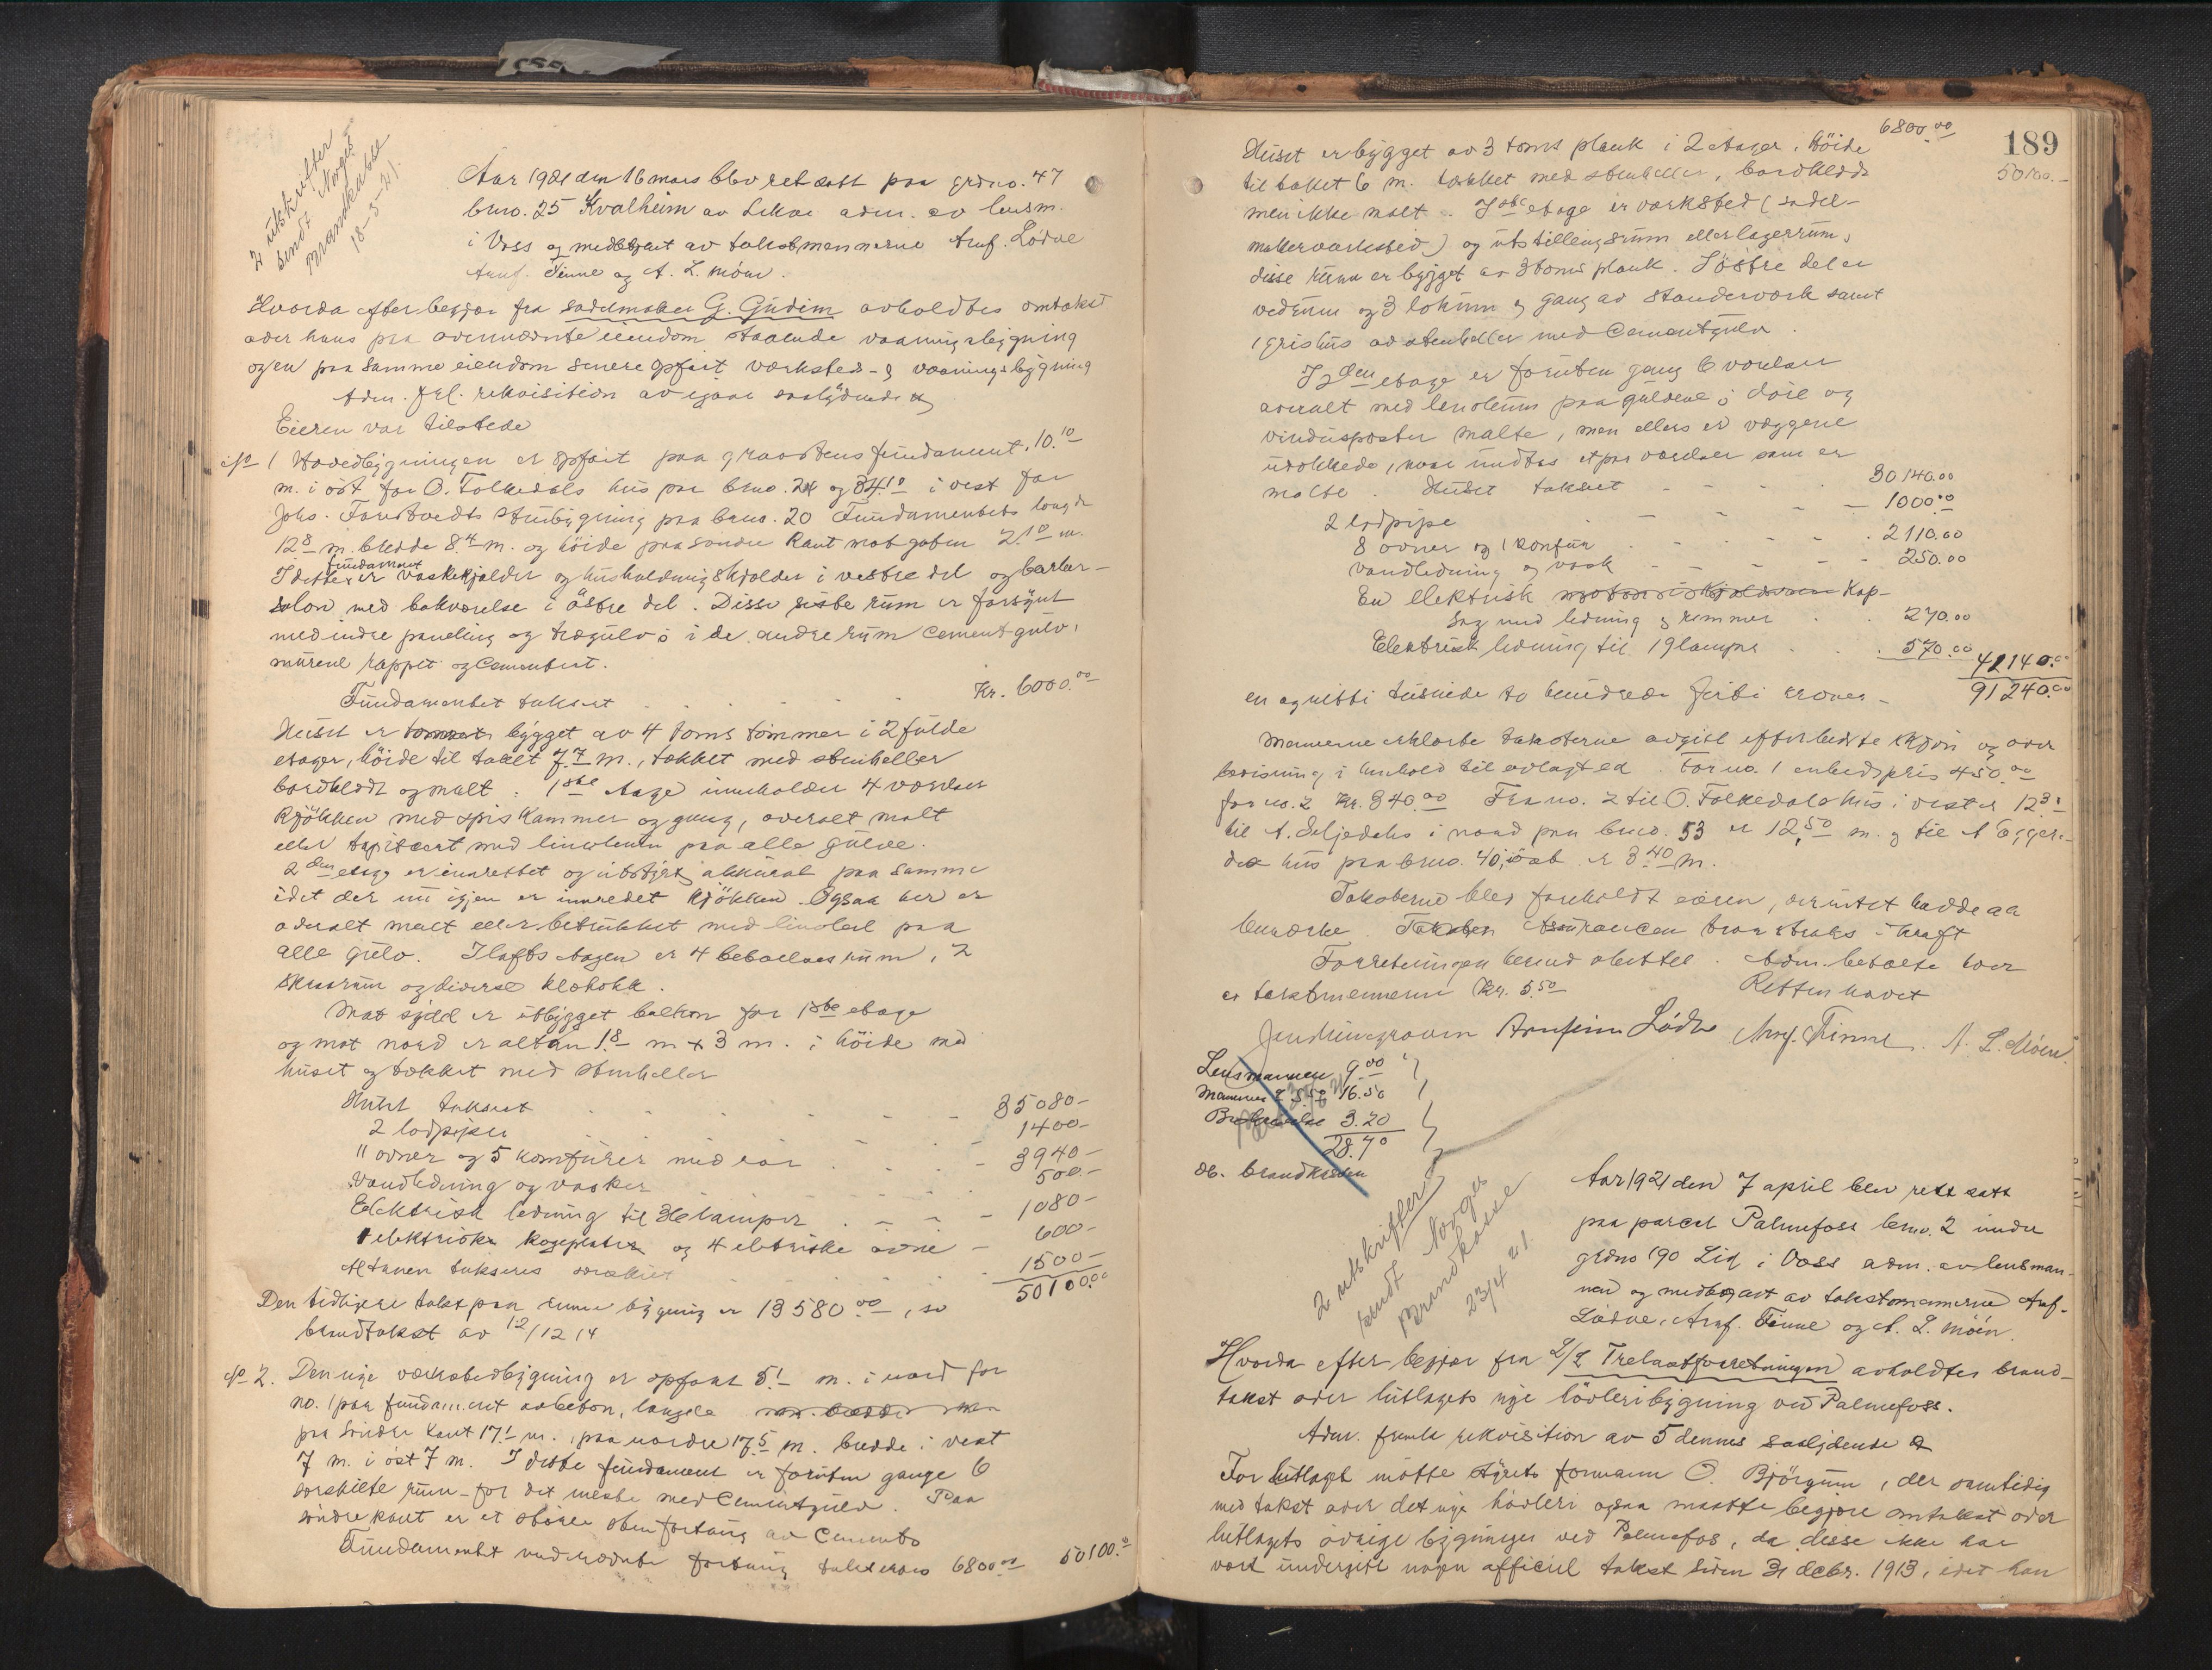 2 utskrifter
sendt Norges
Brandkasse
18-3-21.
Aar 1921 den 16 mars blev ret satt paa grdno. 47
brno. 25 Kvalheim av Lekve adm. av lensm.
i Voss og medbetjent av takstmennerne Arnf. Lödve
Arnf. Finne og A. L. Möen.
Hvorda efter begjær fra sadelmaker G. Gudim avholdtes omtakst
over hans paa ovennævnte eiendom staaende vaaningsbygning
og en paa samme eiendom senere opført værksted- og vaaningsbygning
Adm. frl. rekvisition av igaar saalydende
Eieren var tilstede
No 1 Hovedbygningen er opført paa graastens fundament. 10.10
m. i öst for O. Folkedals hus paa brno. 24 og 34.10 i vest for
Johs. Forstvedts stuebygning paa brno. 20 Fundamentets længde
12.8 m. bredde 8.4 m. og höide paa söndre kant mot gaten 2.10 m.
I dette fundament er vaskekjelder og husholdningskjelder i vestre del og barber-
salon med bakværelse i östre del. Disse siste rum er forsynt
med indre paneling og trægulv i de andre rum cementgulv,
murene rappet og cementert.
Fundamentet takseret Kr. 6000.00
Huset er bygget av 4 toms tömmer i 2 fulde
etager, höide til taket 7.7 m., tækket med stenheller
bordklædt og malt. 1ste etage inneholder 4 værelser
Kjökken med spiskammer og gang, overalt malt
eller tapitsert med linoleum paa alle gulve.
2den etage er innrettet og utstyrt akkurat paa samme
idet der nu igjen er innredet kjökken. Ogsaa her er
overalt malt eller betrukket med linoleum paa
alle gulv. I loftsetagen er 4 beboelsesrum, 2
skurrum og diverse kleskott.
Mot syd er utbygget balkon for 1ste etage
og mot nord er altan 1.8 m x 3 m. i höide med
huset og tækket med stenheller
Huset takseret 35080-
2 lodpiper 1400-
11 ovner og 5 komfürer med rör 3940-
Vandledning og vasker 500.-
Elektrisk ledning til 36 lamper 1080-
1 elektriske kogeplater og 4 eletriske ovne 600-
Altanen takseres særskilt 1500-
50100.00
Den tidligere takst paa denne bygning er 13580.00, se
brandtakst av 12/12 14
No 2. Den nye værkstedbygning er opført 5.1 m. i nord for
no. 1 paa fundament av beton, længde
paa söndre kant 17.1 m., paa nordre 17.5 m. bredde i vest
7 m. i öst 7 m. I dette fundament er foruten gange 6
særskilte rum - for det meste med Cementgulv. Paa
söndre kant er et större stenfortaug av Cements
Fundamentet med nævnte fortaug takseres 6800.00 50100.00
189
6800.00
50100.-
Huset er bygget av 3 toms plank i 2 etager, höide
til taket 6 m. tækket med stenheller, bordklædt
men ikke malt. I 1ste etage er værksted (sadel-
makerværksted) og utstillingsrum eller lagerrum,
disse rum er bygget av 3 toms plank. I östre del er
vedrum og 3 lokum og gang av standerværk samt
1 grishus av stenheller med Cementgulv.
I 2den etage er foruten gang 6 værelser
overalt med linoleum paa gulvene, döre og
vinduspaster malte, men ellers er væggene
utrokkede, naar undtas et par værelser som er
malte. Huset takseret 30140.00
2 lodpipe 1000.00
8 ovner og 1 konfur 2110.00
vandledning og vask 250.00
En elektrisk Kap-
sag med ledning og remmer 270.00
Elektrisk ledning til 19 lamper 570.00 41140.00
en og nitti tusinde to hundrede firti kroner - 91240.00
Mennerne erklærte taksterne avgit efter bedste skjön og over
bevisning i henhold til avlagt ed. For no. 1 enhedspris 450.00
for no. 2 Kr. 340.00 Fra no. 2 til O. Folkedals hus i vest er 12.31
til A. Seljedahls i nord paa brno. 53 er 12,50 m. og til A Egger-
des hus paa brno. 40, öst er 3.40 m.
Taksterne blev foreholdt eieren, der intet hadde aa
bemærke. Assurancen træ straks i kraft
Forretningen hermed sluttet. Adm. betalte hver
av takstmennerne Kr. 5.50
Retten hævet
Arnfinn Lödve Arnf. Finne A. L. Möen.
Lensmannen 9.00
Mennene à 5.50 16.50
3.20
28.70
db. brandkassen
2 utskrifter
sendt Norges
Brandkasse
23/4 21.
Aar 1921 den 7 april blev rett satt
paa parcel Palmefoss brno. 2 under
grdno 190 Lid i Voss adm. av lensman-
nen og medbetjent av takstmennerne Arnf.
Lödve, Arnf. Finne og A. L. Möen.
Hvorda efter begjær fra L/L Trelastforretningen avholdtes brand-
takst over lutlagets nye hövleribygning ved Palmefoss.
Adm. fremla rekvisition av 5 dennes saalydende
For lutlaget mötte styrets formann O. Björgum, der samtidig
med takst over det nye hövleri ogsaa maatte begjære omtakst over
lutlagets övrige bygninger ved Palmefos, da disse ikke har
vært undergitt nogen officiel takst siden 31 decbr. 1913, idet han